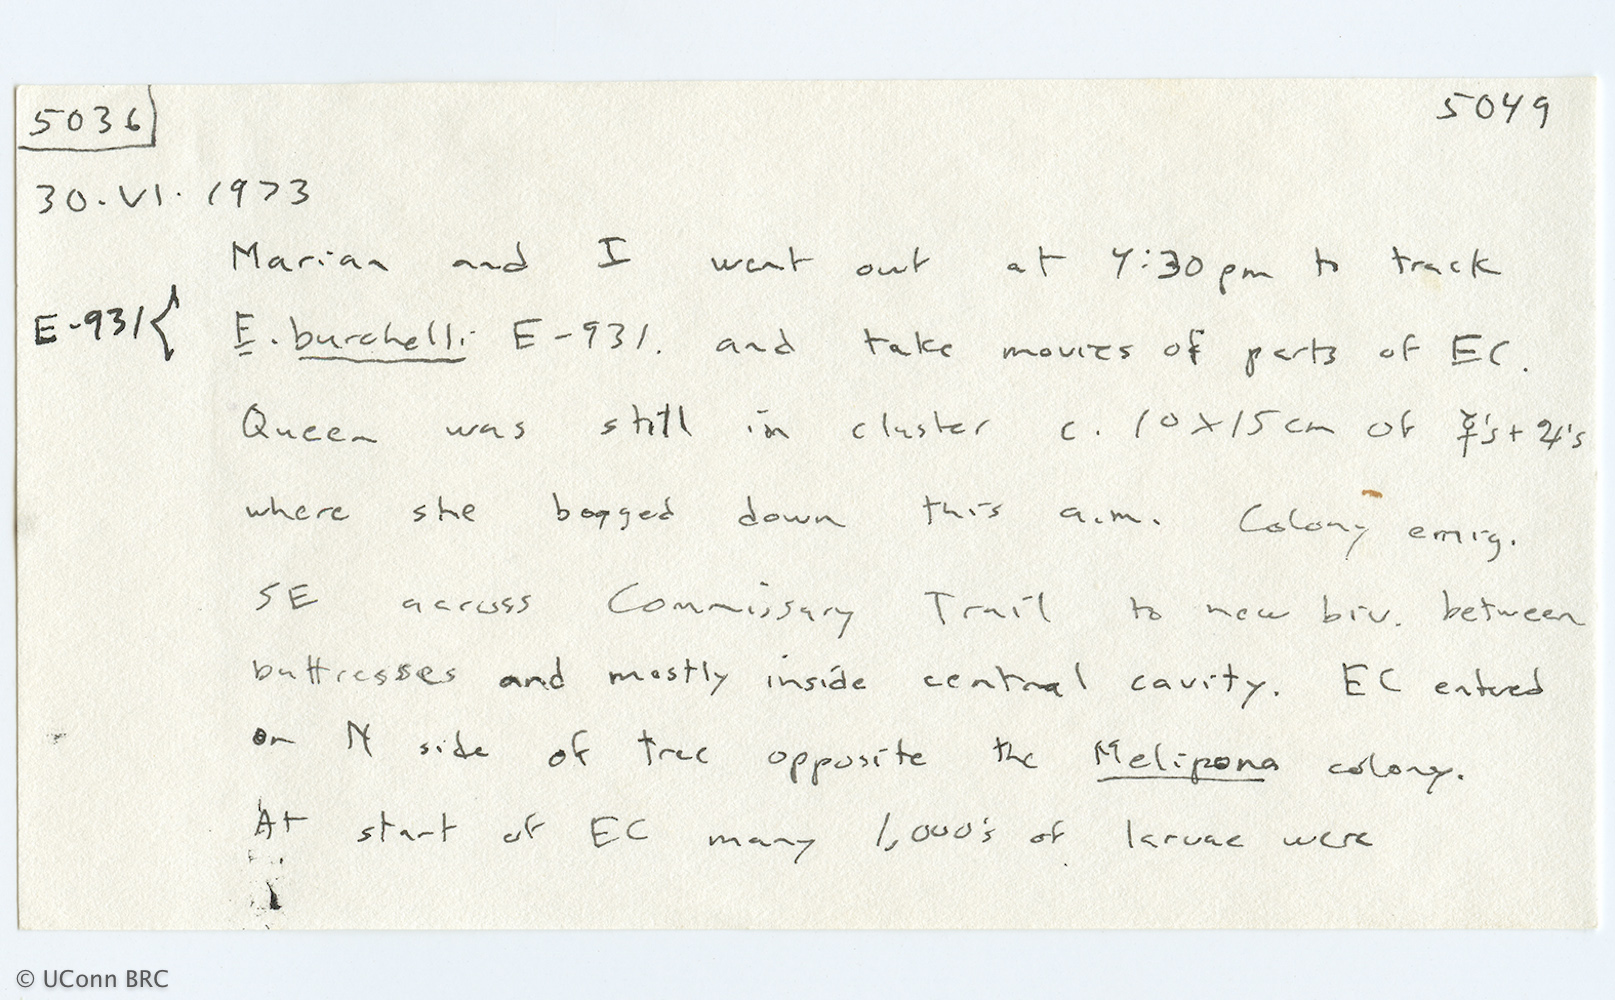 5036 5049
30.VI.1973
Marian and I went out at 4:30pm to track
E-931{ E. burchelli E-931. and take movies of parts of EC.
Queen was still in cluster c. 10x15cm of ☿'s + ♃'s
where she bogged down this a.m. Colony emig.
SE across Commissary Trail to new biv. between
buttresses and mostly inside central cavity. EC entered
on N side of tree opposite the Melipona colony.
At start of EC many 1,000's of larvae were
© UConn BRC